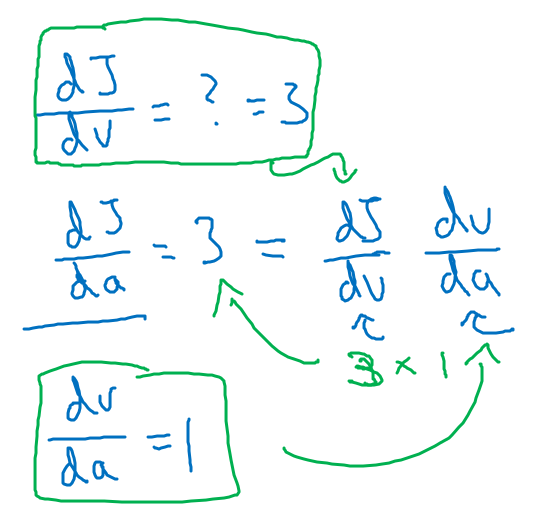 dJ/dv = ? = 3
dJ/da = 3 = dJ/dv dv/da
3 × 1
dv/da = 1